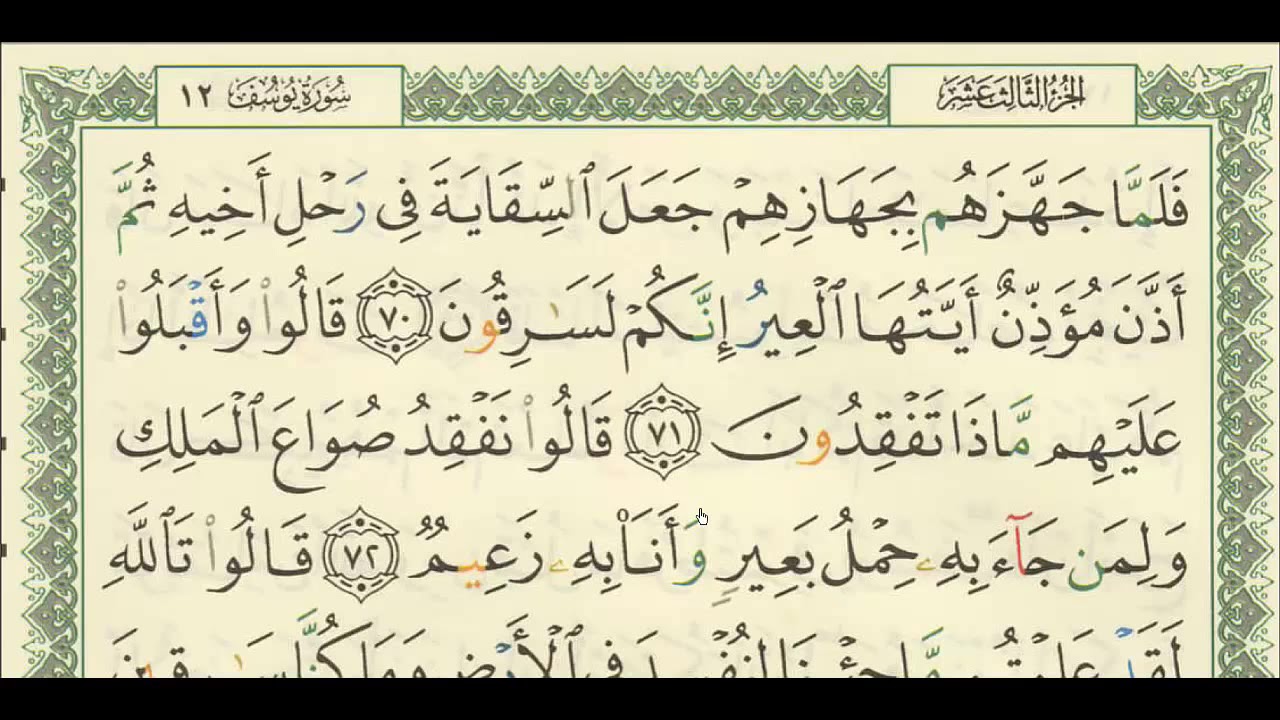 الجزء الثالث عشر
سورة يوسف ١٢
فَلَمَّا جَهَّزَهُم بِجَهَازِهِمْ جَعَلَ ٱلسِّقَايَةَ فِى رَحْلِ أَخِيهِ ثُمَّ
أَذَّنَ مُؤَذِّنٌ أَيَّتُهَا ٱلْعِيرُ إِنَّكُمْ لَسَـٰرِقُونَ ٧٠ قَالُوا۟ وَأَقْبَلُوا۟
عَلَيْهِم مَّاذَا تَفْقِدُونَ ٧١ قَالُوا۟ نَفْقِدُ صُوَاعَ ٱلْمَلِكِ
وَلِمَن جَآءَ بِهِۦ حِمْلُ بَعِيرٍ وَأَنَا۠ بِهِۦ زَعِيمٌ ٧٢ قَالُوا۟ تَٱللَّهِ
لَقَدْ عَلِمْتُم مَّا جِئْنَا لِنُفْسِدَ فِى ٱلْأَرْضِ وَمَا كُنَّا سَـٰرِقِينَ